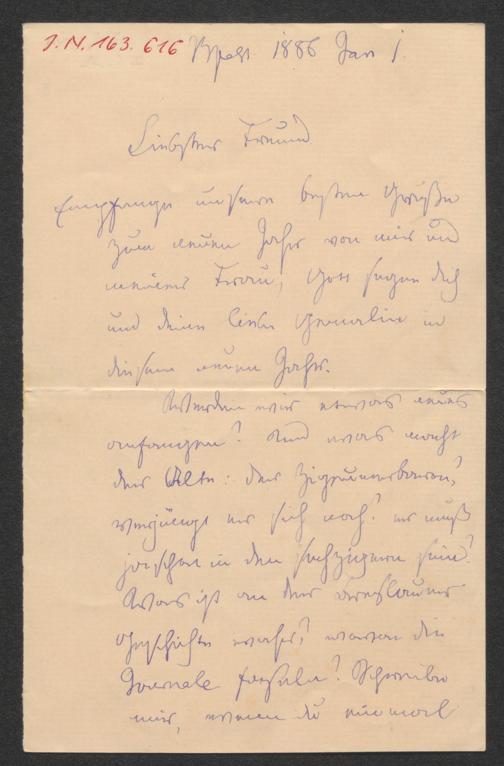 J.N. 163.616
Bpest 1886 Jan 1.
Liebster Freund
Empfange unsere besten Grüße
zum neuen Jahr von mir und
meiner Frau, Gott segne dich
und deine liebe Gemalin in
diesem neuen Jahr.
Werden wir etwas neues
anfangen? Und was macht
der Alte: der Zigeunerbaron?
verjüngt er sich noch? er muß
ja schon in den sechzigern sein?
Was ist an der Breslauer
Geschichte wahr? wovon die
Journale faseln? Schreibe
mir, wenn du einmal